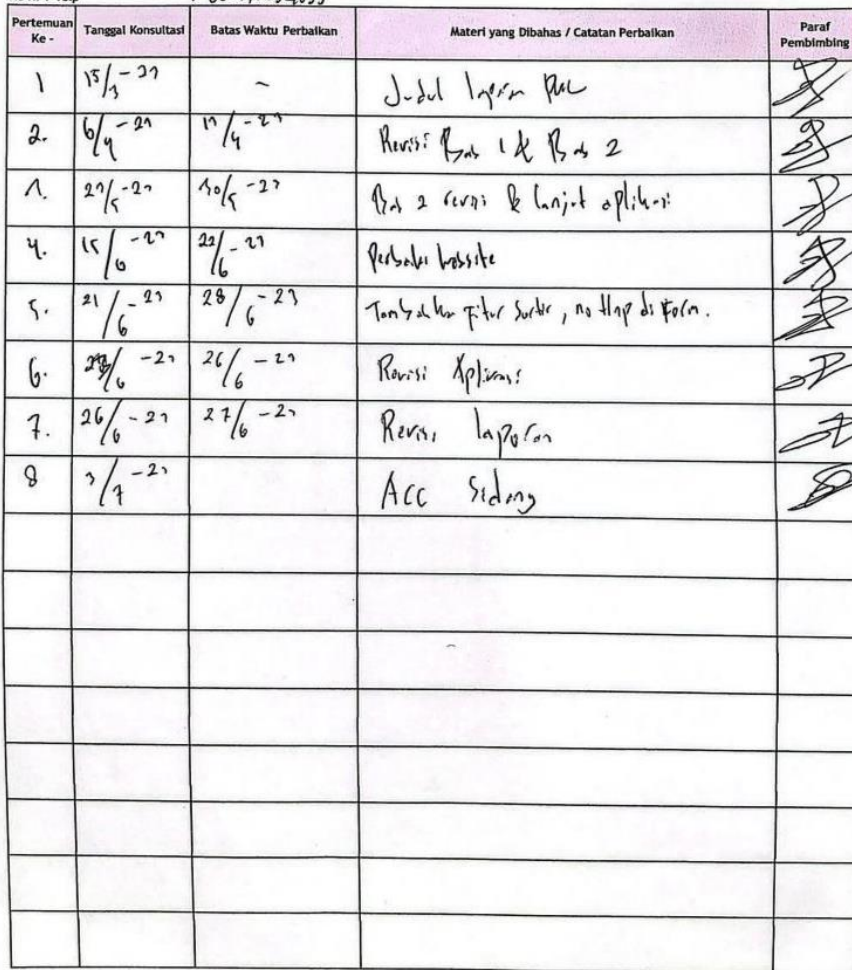 Pertemuan Ke - Tanggal Konsultasi Batas Waktu Perbaikan Materi yang Dibahas / Catatan Perbaikan Paraf Pembimbing
1 15/3 -23 - Judul laporan PKL
2. 6/4 -23 /4 -23 Revisi Bab 1 & Bab 2
3. /5 -23 30/5 -23 Bab 2 revisi & lanjut aplikasi
4. 15/6 -23 22/6 -23 Perbaiki website
5. 21/6 -23 28/6 -23 Tambahkan Fitur Sortir, no Hnp di Form.
6. /6 -23 26/6 -23 Revisi Aplikasi
7. 26/6 -23 27/6 -23 Revisi laporan
8 3/7 -23 ACC Sidang